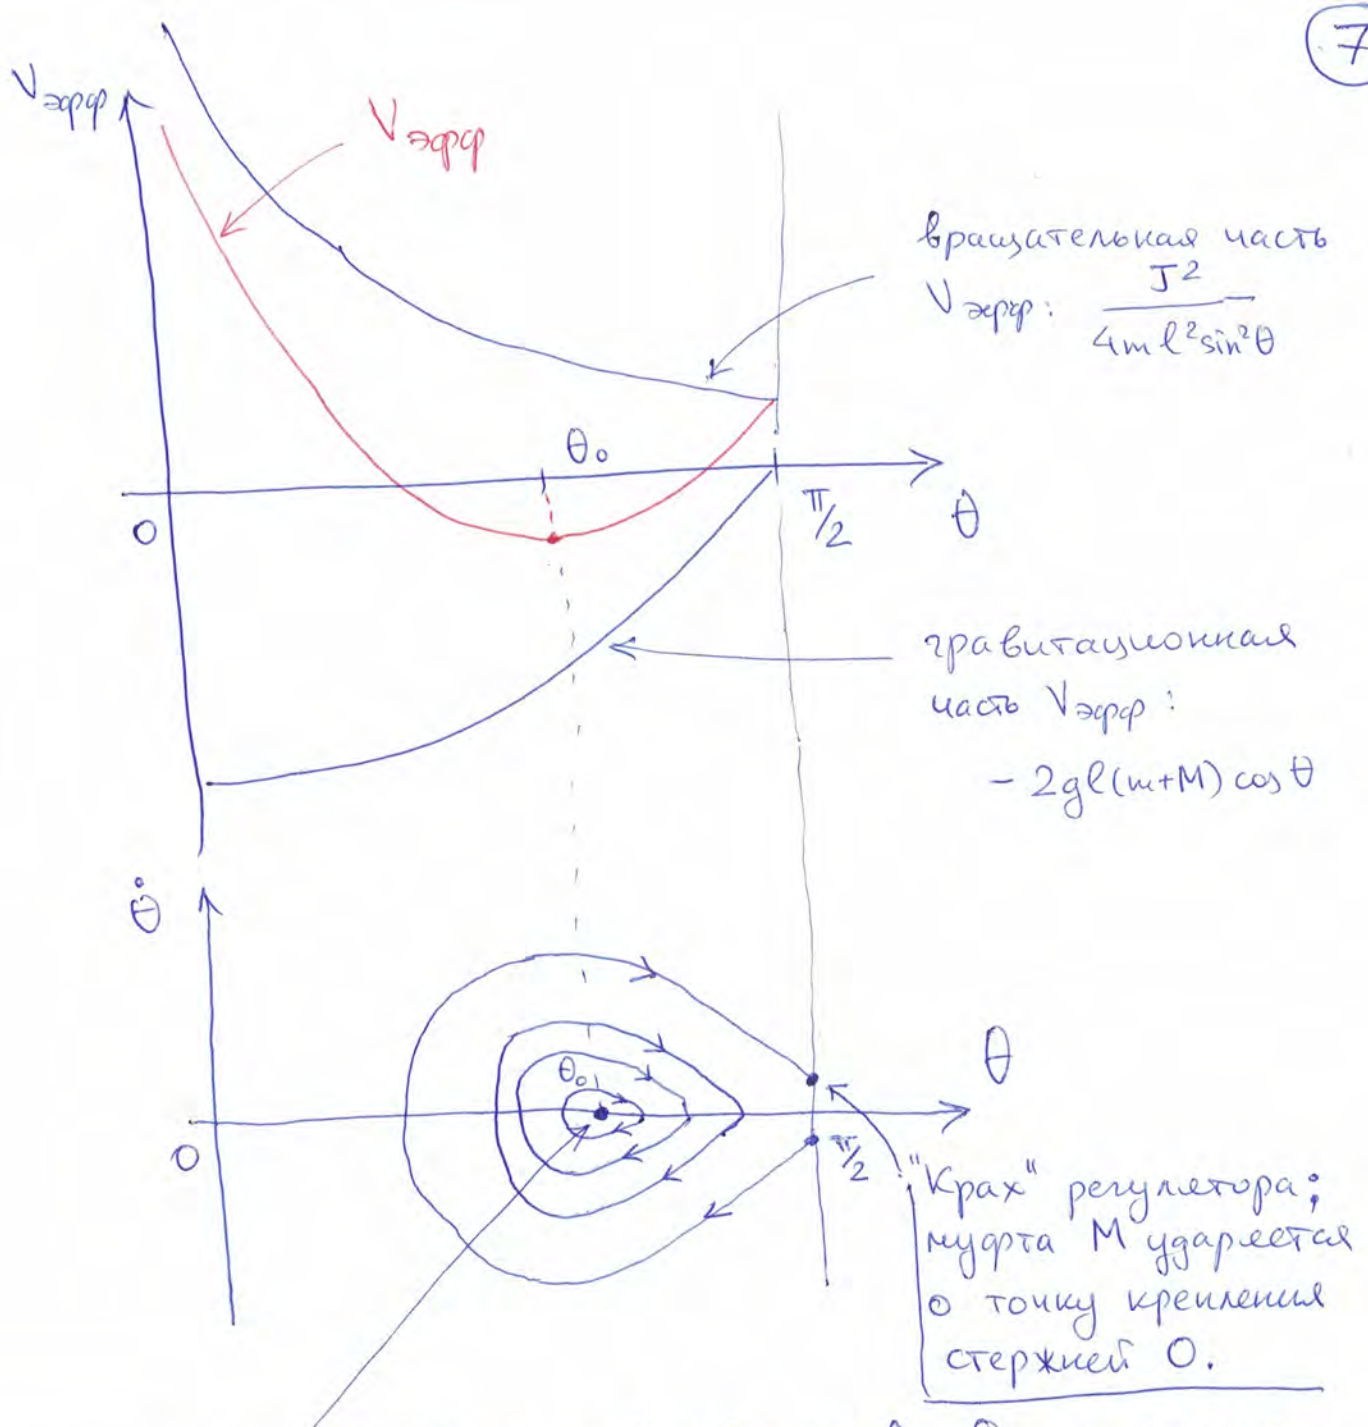 7
V эфф
V эфф
вращательная часть
V эфф: J² / 4ml²sin²θ
θ₀
0
π/2
θ
гравитационная
часть V эфф:
- 2gl(m+M) cos θ
θ̇
θ₀
θ
0
π/2
"Крах" регулятора;
муфта М ударяется
о точку крепления
стержней О.